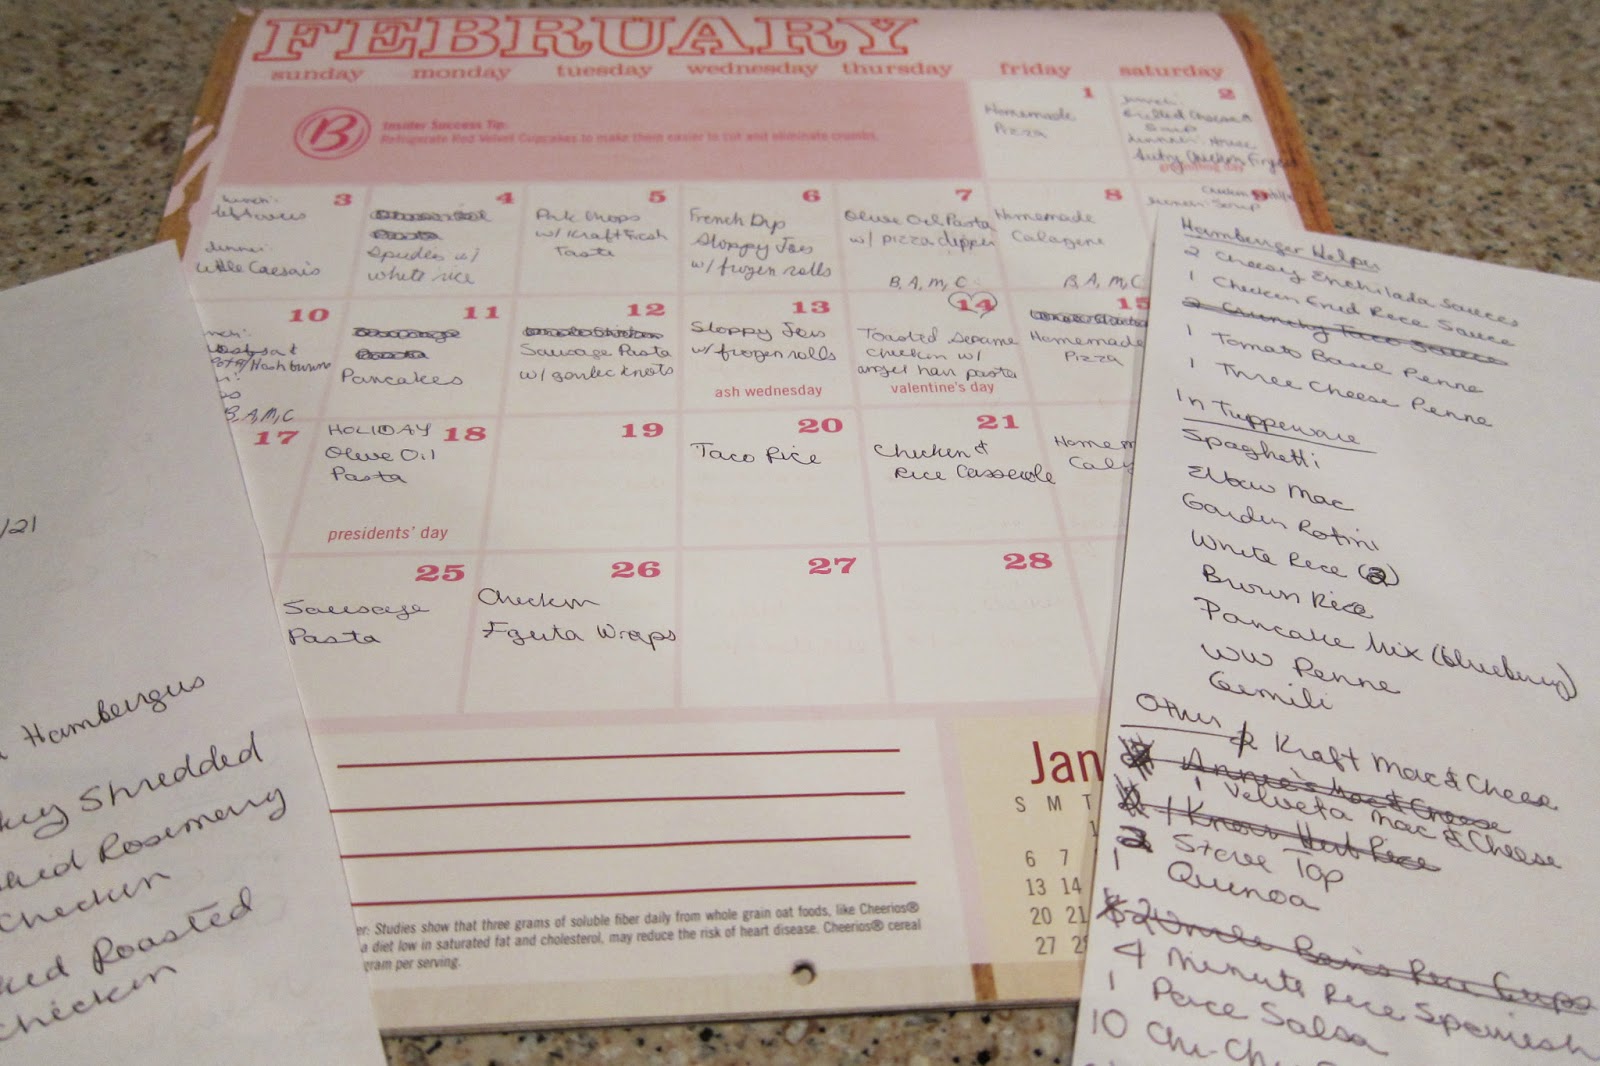 FEBRUARY
sunday monday tuesday wednesday thursday friday saturday
B
Insider Success Tip:
Refrigerate Red Velvet Cupcakes to make them easier to cut and eliminate crumbs.
1
Homemade
Pizza
2
lunch:
Grilled Cheese &
Soup
dinner: House
Chicken
groundhog day
3
lunch:
leftovers
dinner:
Little Caesars
4
w/
white rice
5
Pork Chops
w/ Kraft Fresh
Taste
6
French Dip
Sloppy Joes
w/ frozen rolls
7
Olive Oil Pasta
w/ pizza dipper
B, A, M, C
8
Homemade
Calazone
B, A, M, C
9
Chicken
Soup
10
Hashbrown
B, A, M, C
11
Sausage
Pasta
Pancakes
12
Sausage Pasta
w/ garlic knots
13
Sloppy Joes
w/ frozen rolls
ash wednesday
14
Toasted Sesame
chicken w/
angel hair pasta
valentine's day
15
Homemade
Pizza
17
HOLIDAY 18
Olive Oil
Pasta
presidents' day
19
20
Taco Rice
21
Chicken &
Rice Casserole
Homem
Calz
25
Sausage
Pasta
26
Chicken
Fajita Wraps
27
28
er: Studies show that three grams of soluble fiber daily from whole grain oat foods, like Cheerios®
a diet low in saturated fat and cholesterol, may reduce the risk of heart disease. Cheerios® cereal
gram per serving.
Jan
S M T
1
6 7
13 14
20 21
27 28
/21
Hamburgers
Shredded
Rosemary
Chicken
Roasted
Chicken
Hamburger Helper
2 Cheesy Enchilada Sauces
1 Chicken Fried Rice Sauce
2 Crunchy Taco Sauce
1 Tomato Basil Penne
1 Three Cheese Penne
In Tupperware
Spaghetti
Elbow Mac
Garden Rotini
White Rice (2)
Brown Rice
Pancake Mix (blueberry)
WW Penne
Gemili
Other
Kraft Mac & Cheese
Annie's Mac & Cheese
1 Velveeta Mac & Cheese
1 Knorr Rice
Stove Top
1 Quinoa
2 Uncle Bens Rice Cups
4 Minute Rice Spanish
1 Pace Salsa
10 Chi-Chi